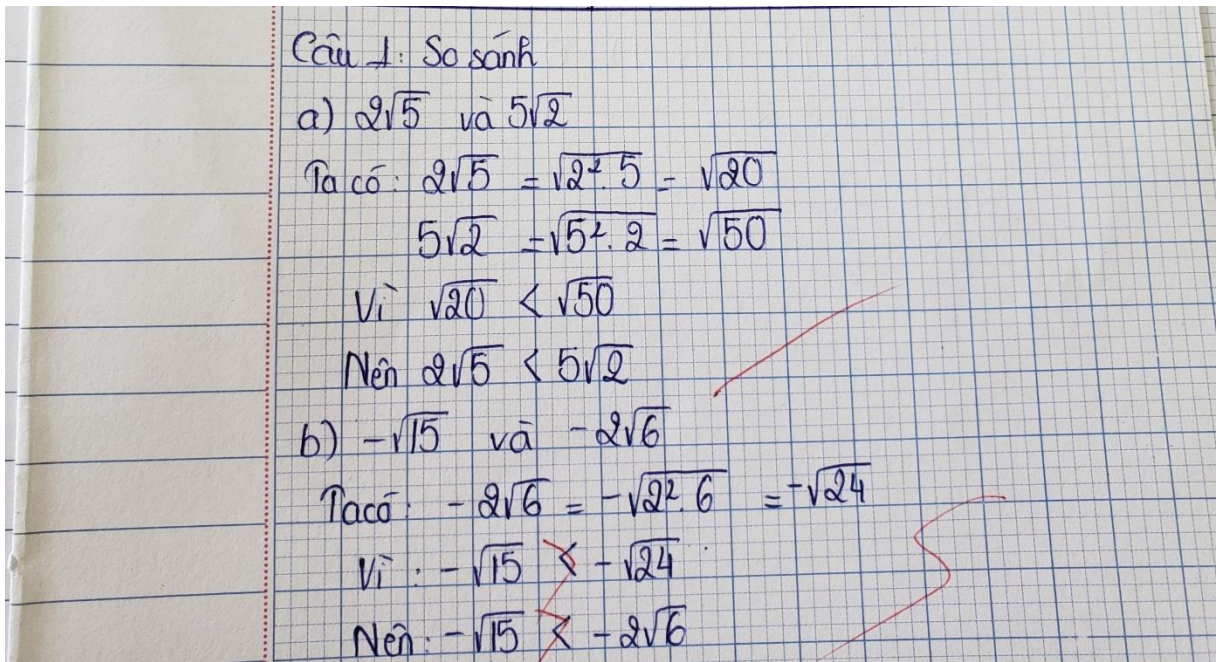 Câu 1: So sánh
a) 2√5 và 5√2
Ta có: 2√5 = √(2².5) = √20
5√2 = √(5².2) = √50
Vì √20 < √50
Nên 2√5 < 5√2
b) -√15 và -2√6
Ta có: -2√6 = -√(2².6) = -√24
Vì: -√15 < -√24
Nên: -√15 < -2√6